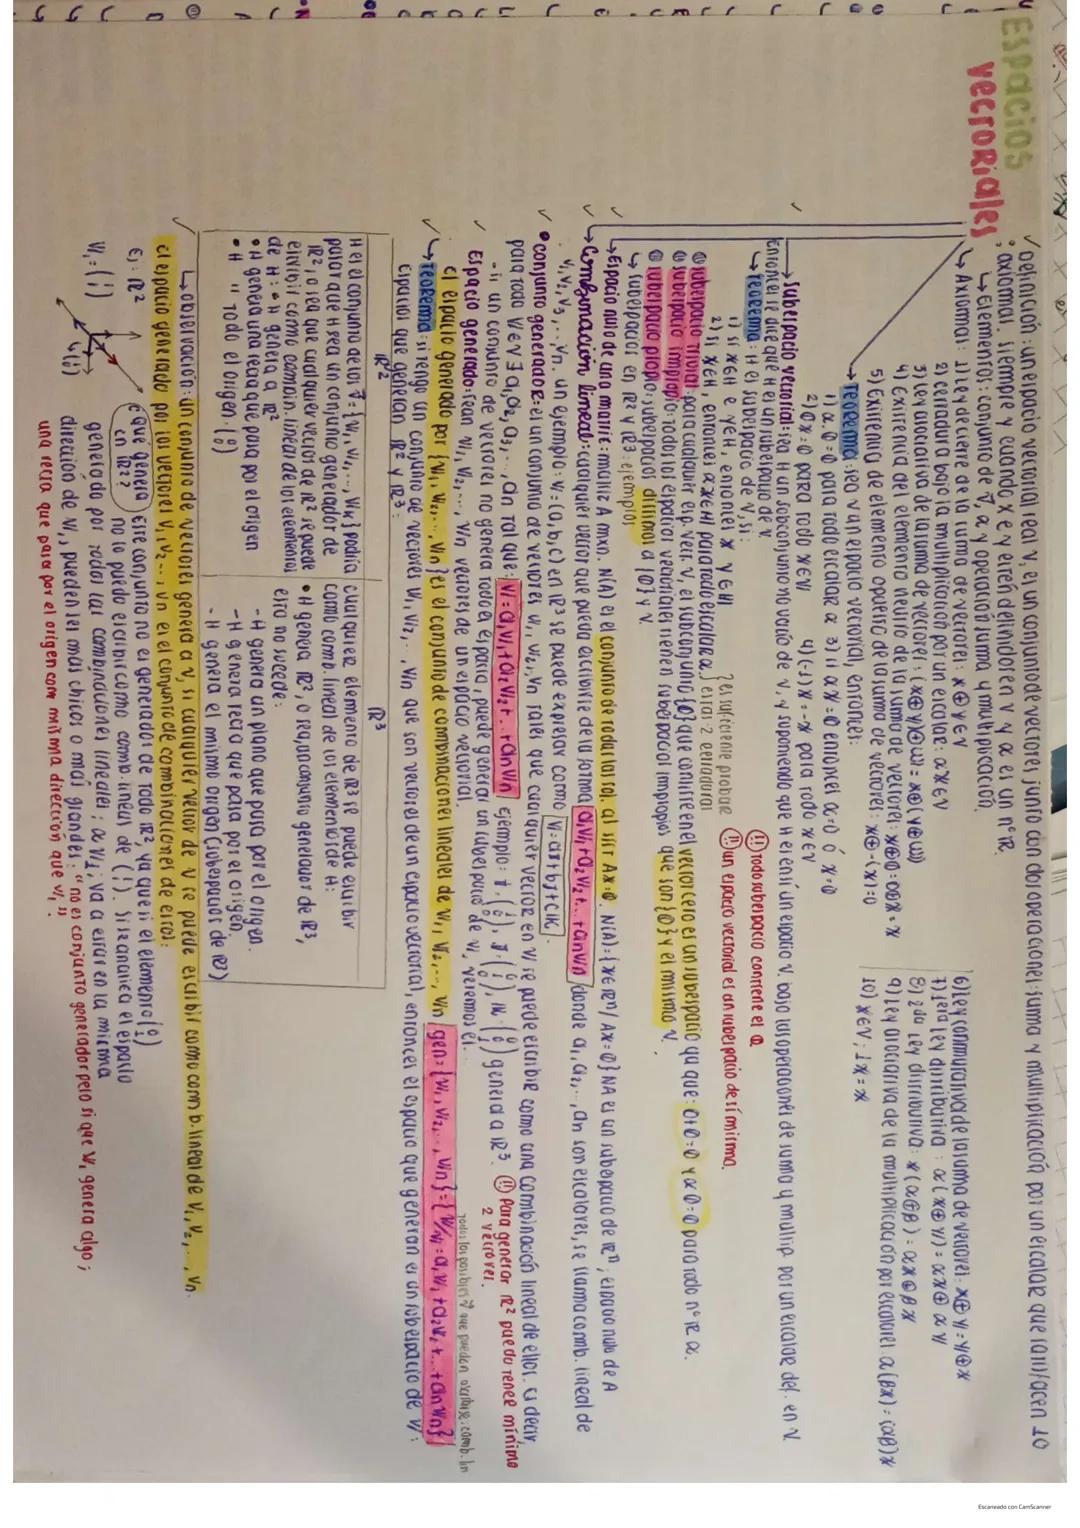 ESPACIOS
VECTORIALES
✓ Definición: un espacio vectorial real V, es un conjunto de vectores junto con dos operaciones: suma y multiplicación por un escalar que satisfacen 10
axiomas, siempre y cuando x e y estén definidos en V y α es un n° ℝ.
↳ Elementos: conjunto de v⃗, α y operación suma y multiplicación.
↳ Axiomas: 1) Ley de cierre de la suma de vectores: x ⊕ y ∈ V
2) cerradura bajo la multiplicación por un escalar: α x ∈ V
3) Ley asociativa de la suma de vectores: (x ⊕ y) ⊕ w = x ⊕ (y ⊕ w)
4) Existencia del elemento neutro de la suma de vectores: x ⊕ 0 = 0 ⊕ x = x
5) Existencia de elemento opuesto de la suma de vectores: x ⊕ -(x) = 0
6) Ley conmutativa de la suma de vectores: x ⊕ y = y ⊕ x
7) 1era ley distributiva: α(x ⊕ y) = αx ⊕ αy
8) 2da Ley distributiva: x(α ⊕ β) = αx ⊕ βx
9) Ley asociativa de la multiplicación por escalares α(βx) = (αβ)x
10) x ∈ V; 1x = x
→ Teorema: sea V un espacio vectorial, entonces:
1) α.0 = 0 para todo escalar α 3) si αx = 0 entonces α=0 ó x=0
2) 0x = 0 para todo x ∈ V 4) (-1)x = -x para todo x ∈ V
→ Subespacio vectorial: sea H un subconjunto no vacío de V, y suponiendo que H es en sí un espacio V. bajo las operaciones de suma y multip. por un escalar def. en V
entonces se dice que H es un subespacio de V
→ Teorema: H es subespacio de V, si:
1) si x ∈ H e y ∈ H, entonces x y ∈ H
2) si x ∈ H, entonces αx ∈ H para todo escalar α
} es suficiente probar estas 2 cerraduras
(!!) Todo subespacio contiene el 0
(!!) un espacio vectorial es un subespacio de sí mismo.
subespacio trivial: para cualquier esp. vect. V, el subconjunto {0} que contiene en el vector cero es un subespacio ya que: 0+0=0 y α0=0 para todo n° ℝ α.
subespacio impropio: todos los espacios vectoriales tienen subespacios impropios que son {0} y el mismo V.
subespacio propio: subespacios distintos a {0} y V
↳ subespacios en ℝ² y ℝ³: ejemplos
↳ Espacio nulo de una matriz: matriz A mxn. N(A) es el conjunto de todas las sol. al SIST Ax=0. N(A) = {x ∈ ℝⁿ / Ax=0} NA es un subespacio de ℝⁿ; espacio nulo de A
→ Combinación lineal: cualquier vector que pueda escribirse de la forma a₁V₁+a₂V₂+...+anVn donde a₁, a₂,..., an son escalares, se llama comb. lineal de
V₁, V₂, V₃,..., Vn. un ejemplo: V = (a,b,c) en ℝ³ se puede expresar como V=ai+bj+ck.
• conjunto generador: es un conjunto de vectores V₁, V₂, Vn tales que cualquier vector en V se puede escribir como una combinación lineal de ellos. es decir
para todo V ∈ V ∃ a₁, a₂, a₃,..., an tal que: V = a₁V₁+a₂V₂+...+anVn ejemplo: i (1 0 0), j (0 1 0), k (0 0 1) genera a ℝ³. (!!) Para generar ℝ² puedo tener mínimo
2 vectores.
- si un conjunto de vectores no genera todo el espacio, puede generar un subespacio de V, veremos el
Espacio generado: sean V₁, V₂,..., Vn vectores de un espacio vectorial.
el espacio generado por {V₁, V₂,..., Vn} es el conjunto de combinaciones lineales de V₁, V₂,..., Vn gen = {V₁, V₂,..., Vn} = {V/V = a₁V₁+a₂V₂+...+anVn}
Todos los posibles v⃗ que pueden escribirse: comb. lin
↳ Teorema: si tengo un conjunto de vectores V₁, V₂,..., Vn que son vectores de un espacio vectorial, entonces el espacio que generan es un subespacio de V:
Espacios que generan ℝ² y ℝ³:
ℝ²
H es el conjunto de los v⃗ = {V₁, V₂,..., Vk} podría
pasar que H sea un conjunto generador de
ℝ², o sea que cualquier vector de ℝ² se puede
escribir como combin. lineal de los elementos
de H: • H genera a ℝ²
• H genera una recta que pasa por el origen
• H " todo el origen (0 0)
ℝ³
cualquier elemento de ℝ³ se puede escribir
como comb. lineal de los elementos de H:
• H genera ℝ³, o sea, un conjunto generador de ℝ³,
esto no sucede:
- H genera un plano que pasa por el origen.
- H genera recta que pasa por el origen.
- H genera el mismo origen (subespacios de ℝ³)
↳ observación: un conjunto de vectores genera a V, si cualquier vector de V se puede escribir como comb. lineal de V₁, V₂,..., Vn.
el espacio generado por los vectores V₁, V₂..., Vn es el conjunto de combinaciones de estos:
Ej: ℝ²
V₁ = (1 1)
¿qué genera en ℝ²?
Este conjunto no es generador de todo ℝ², ya que si el elemento
no lo puedo escribir como comb. lineal de (1 1). Si se analiza el espacio
generado por todas las combinaciones lineales: αV₁; va a estar en la misma
dirección de V₁, pueden ser más chicos o más grandes: "no es conjunto generador pero sí que V₁ genera algo;
una recta que pasa por el origen con misma dirección que V₁"
Escaneado con CamScanner